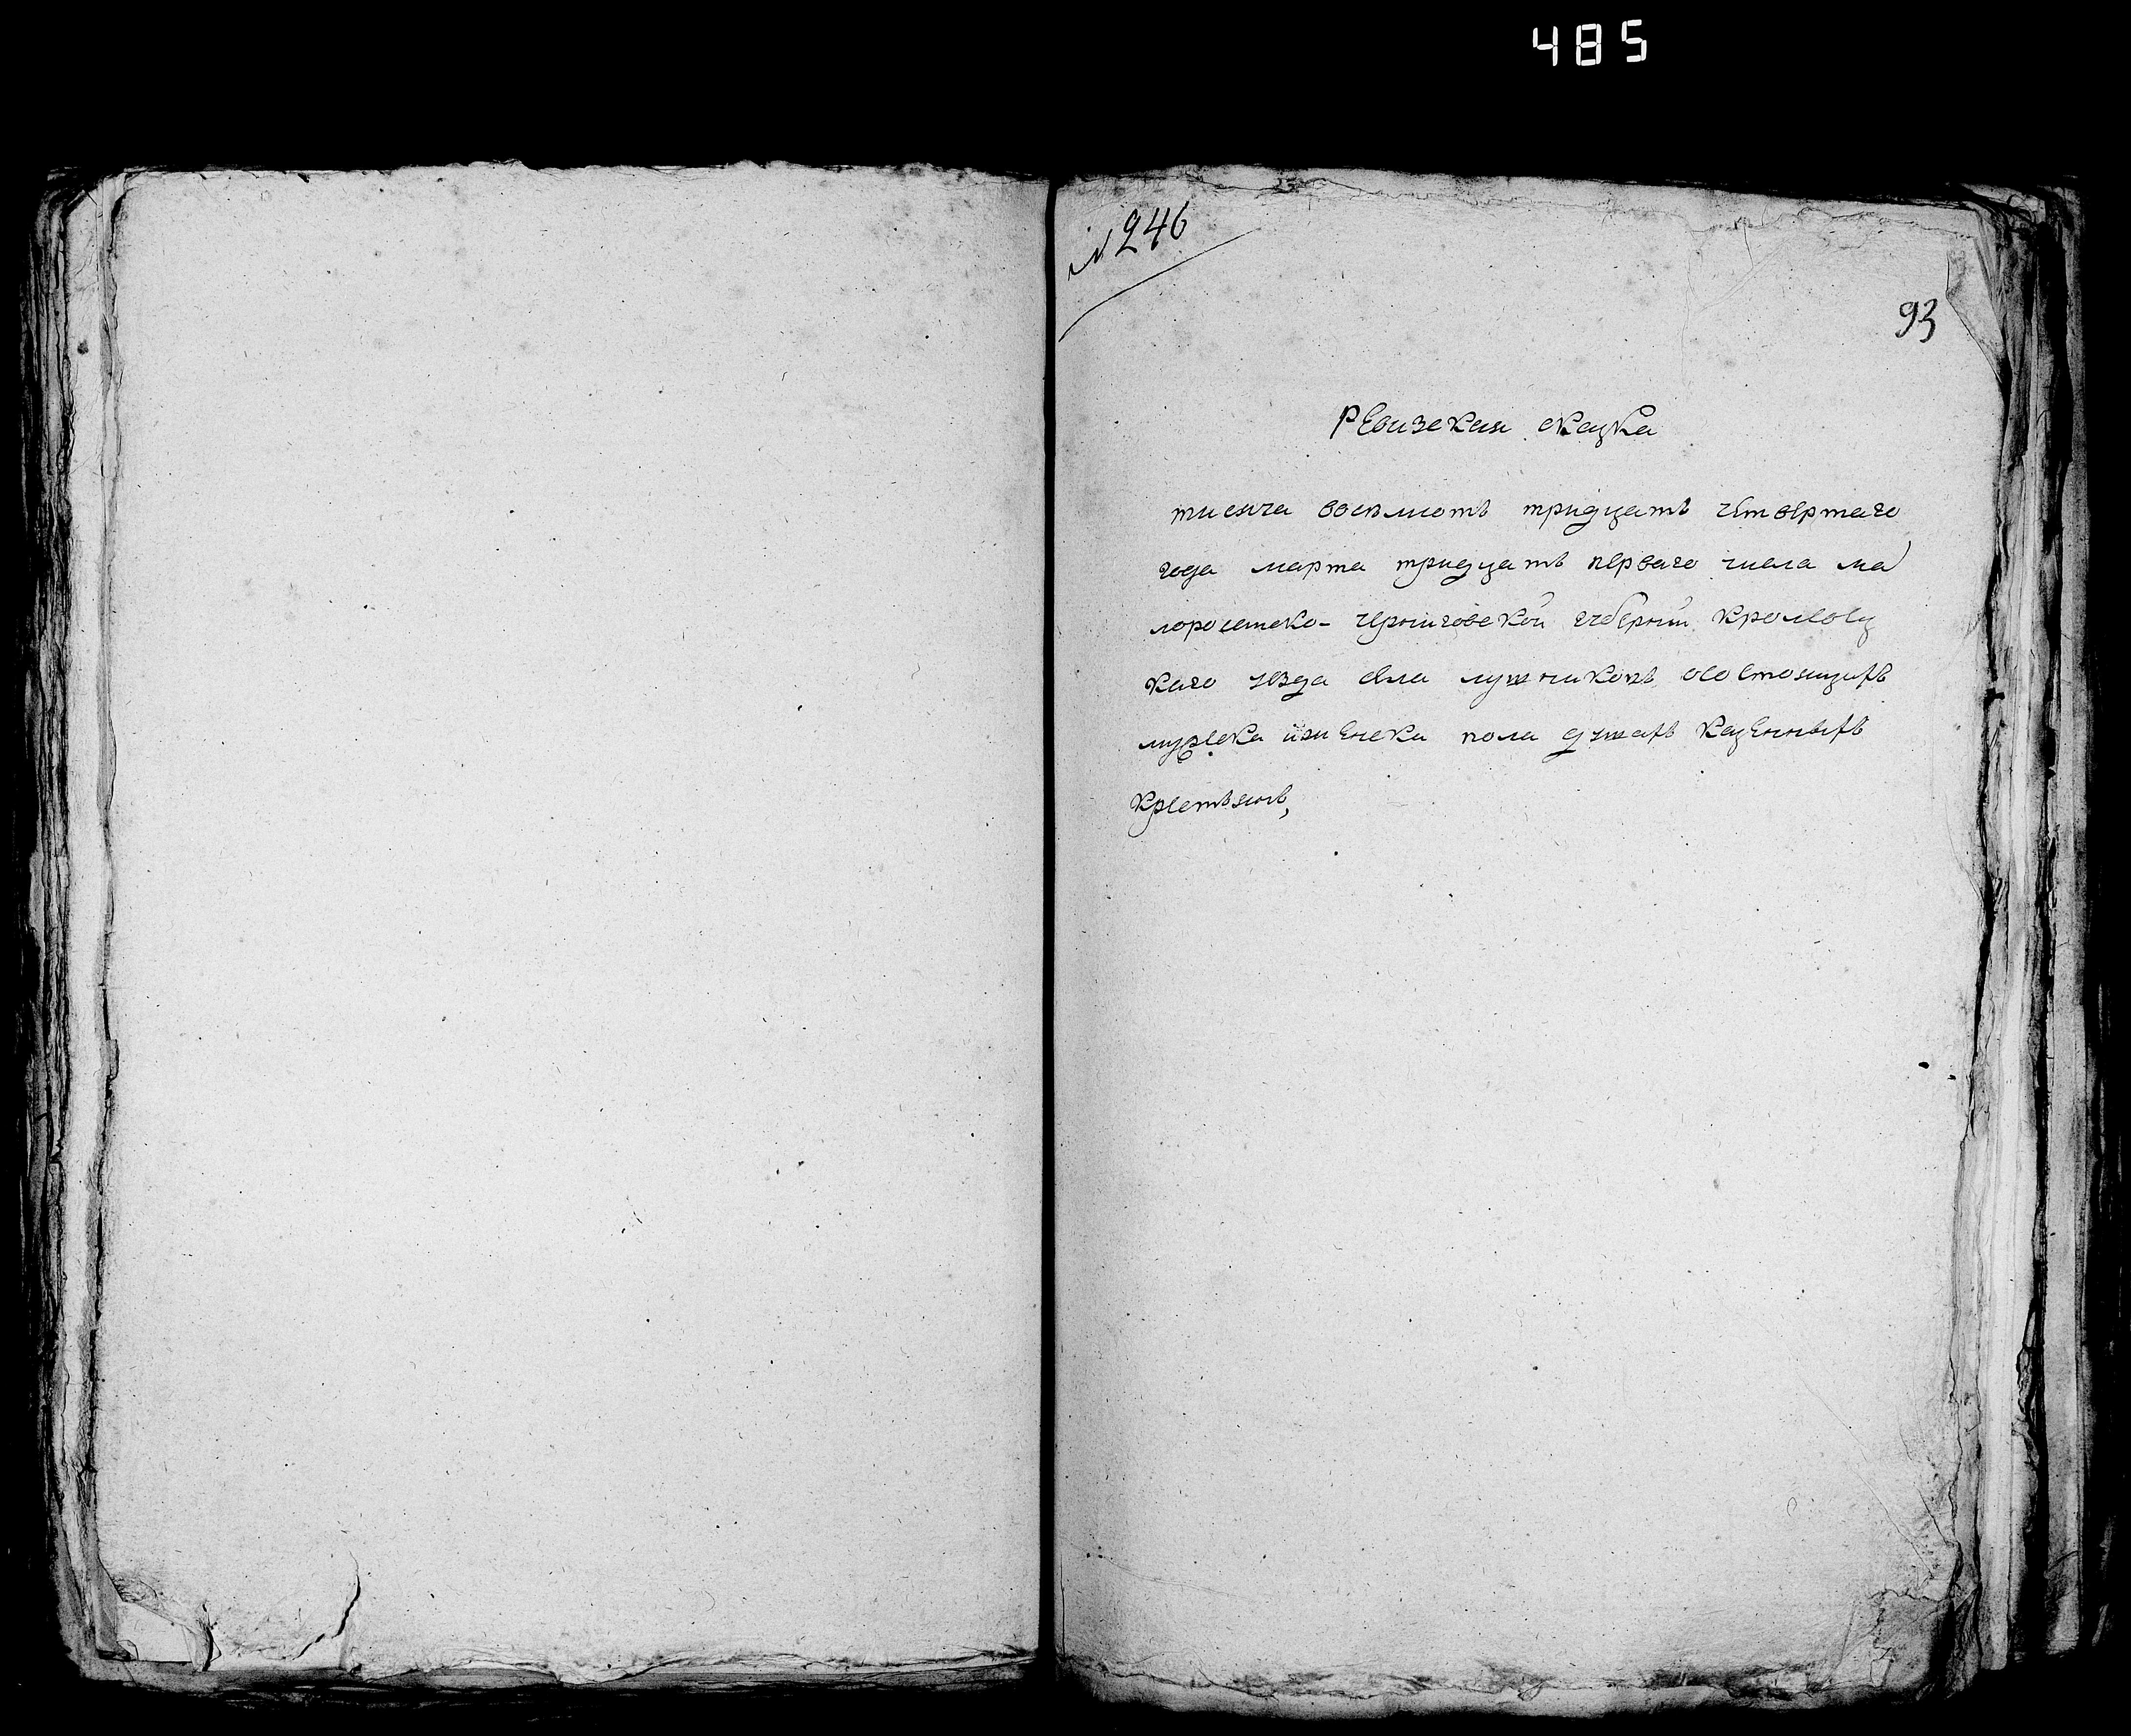 485
№ 246
93
Ревизская сказка
тисяча восемсотъ тридцать четвертаго
года марта тридцать перваго числа ма
лоросийско- Черниговской губернии кролевец
каго уезда села лушниковъ осостоящихъ
мужеска и женска пола душахъ казенныхъ
крестьянъ,